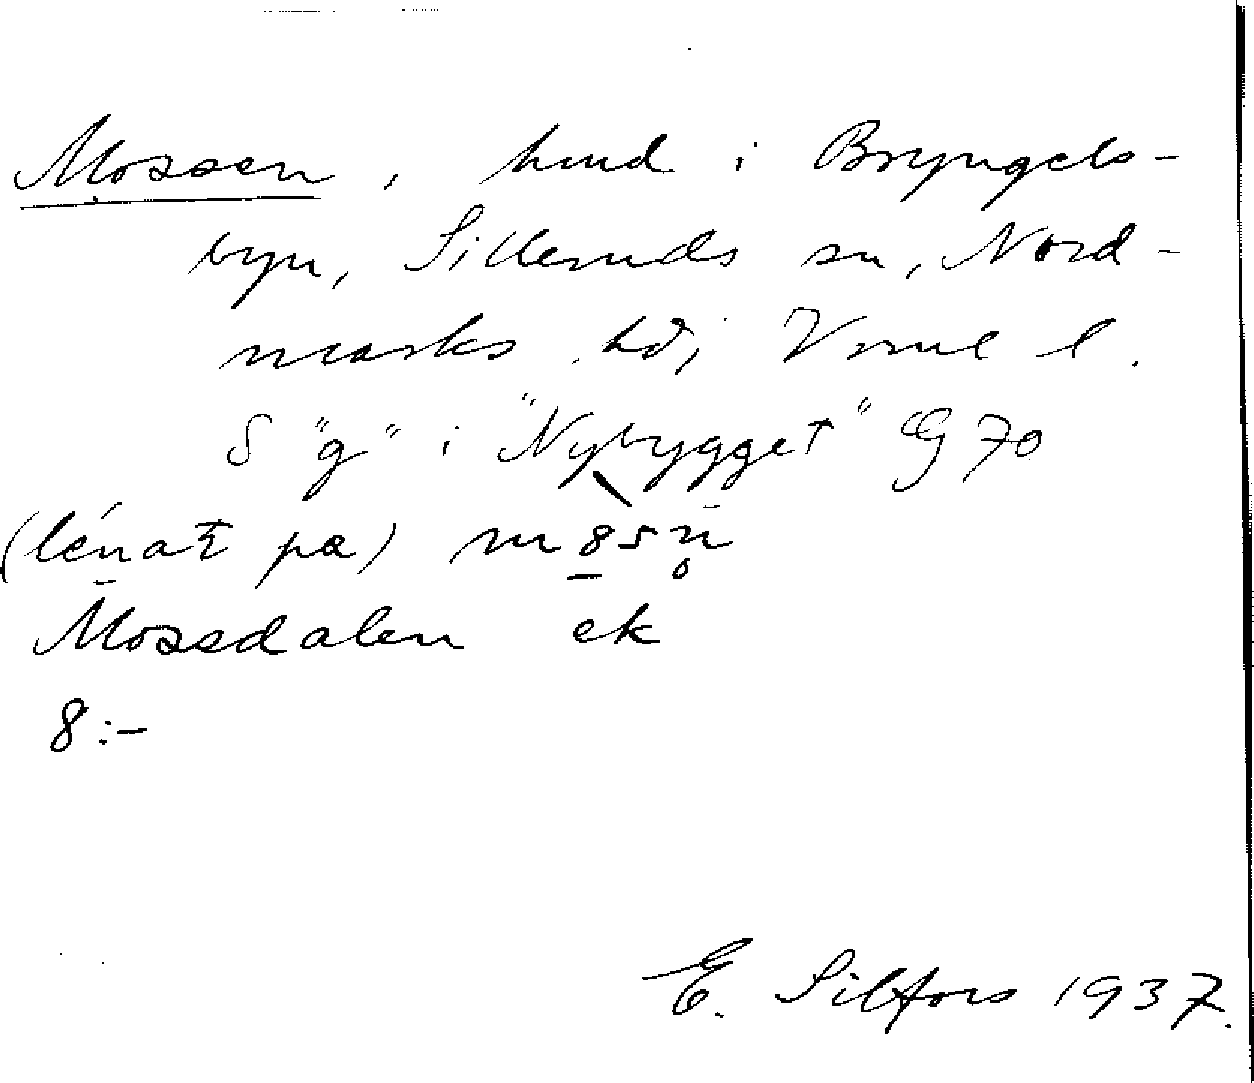 Mossen, hmd i Bryngels-
byn, Silleruds sn, Nord-
marks hd; Vrml l.
S "g" i "Nybygget" G 70
(lénat pa)
Mossdalen ek
8:-
E. Silfors 1937.